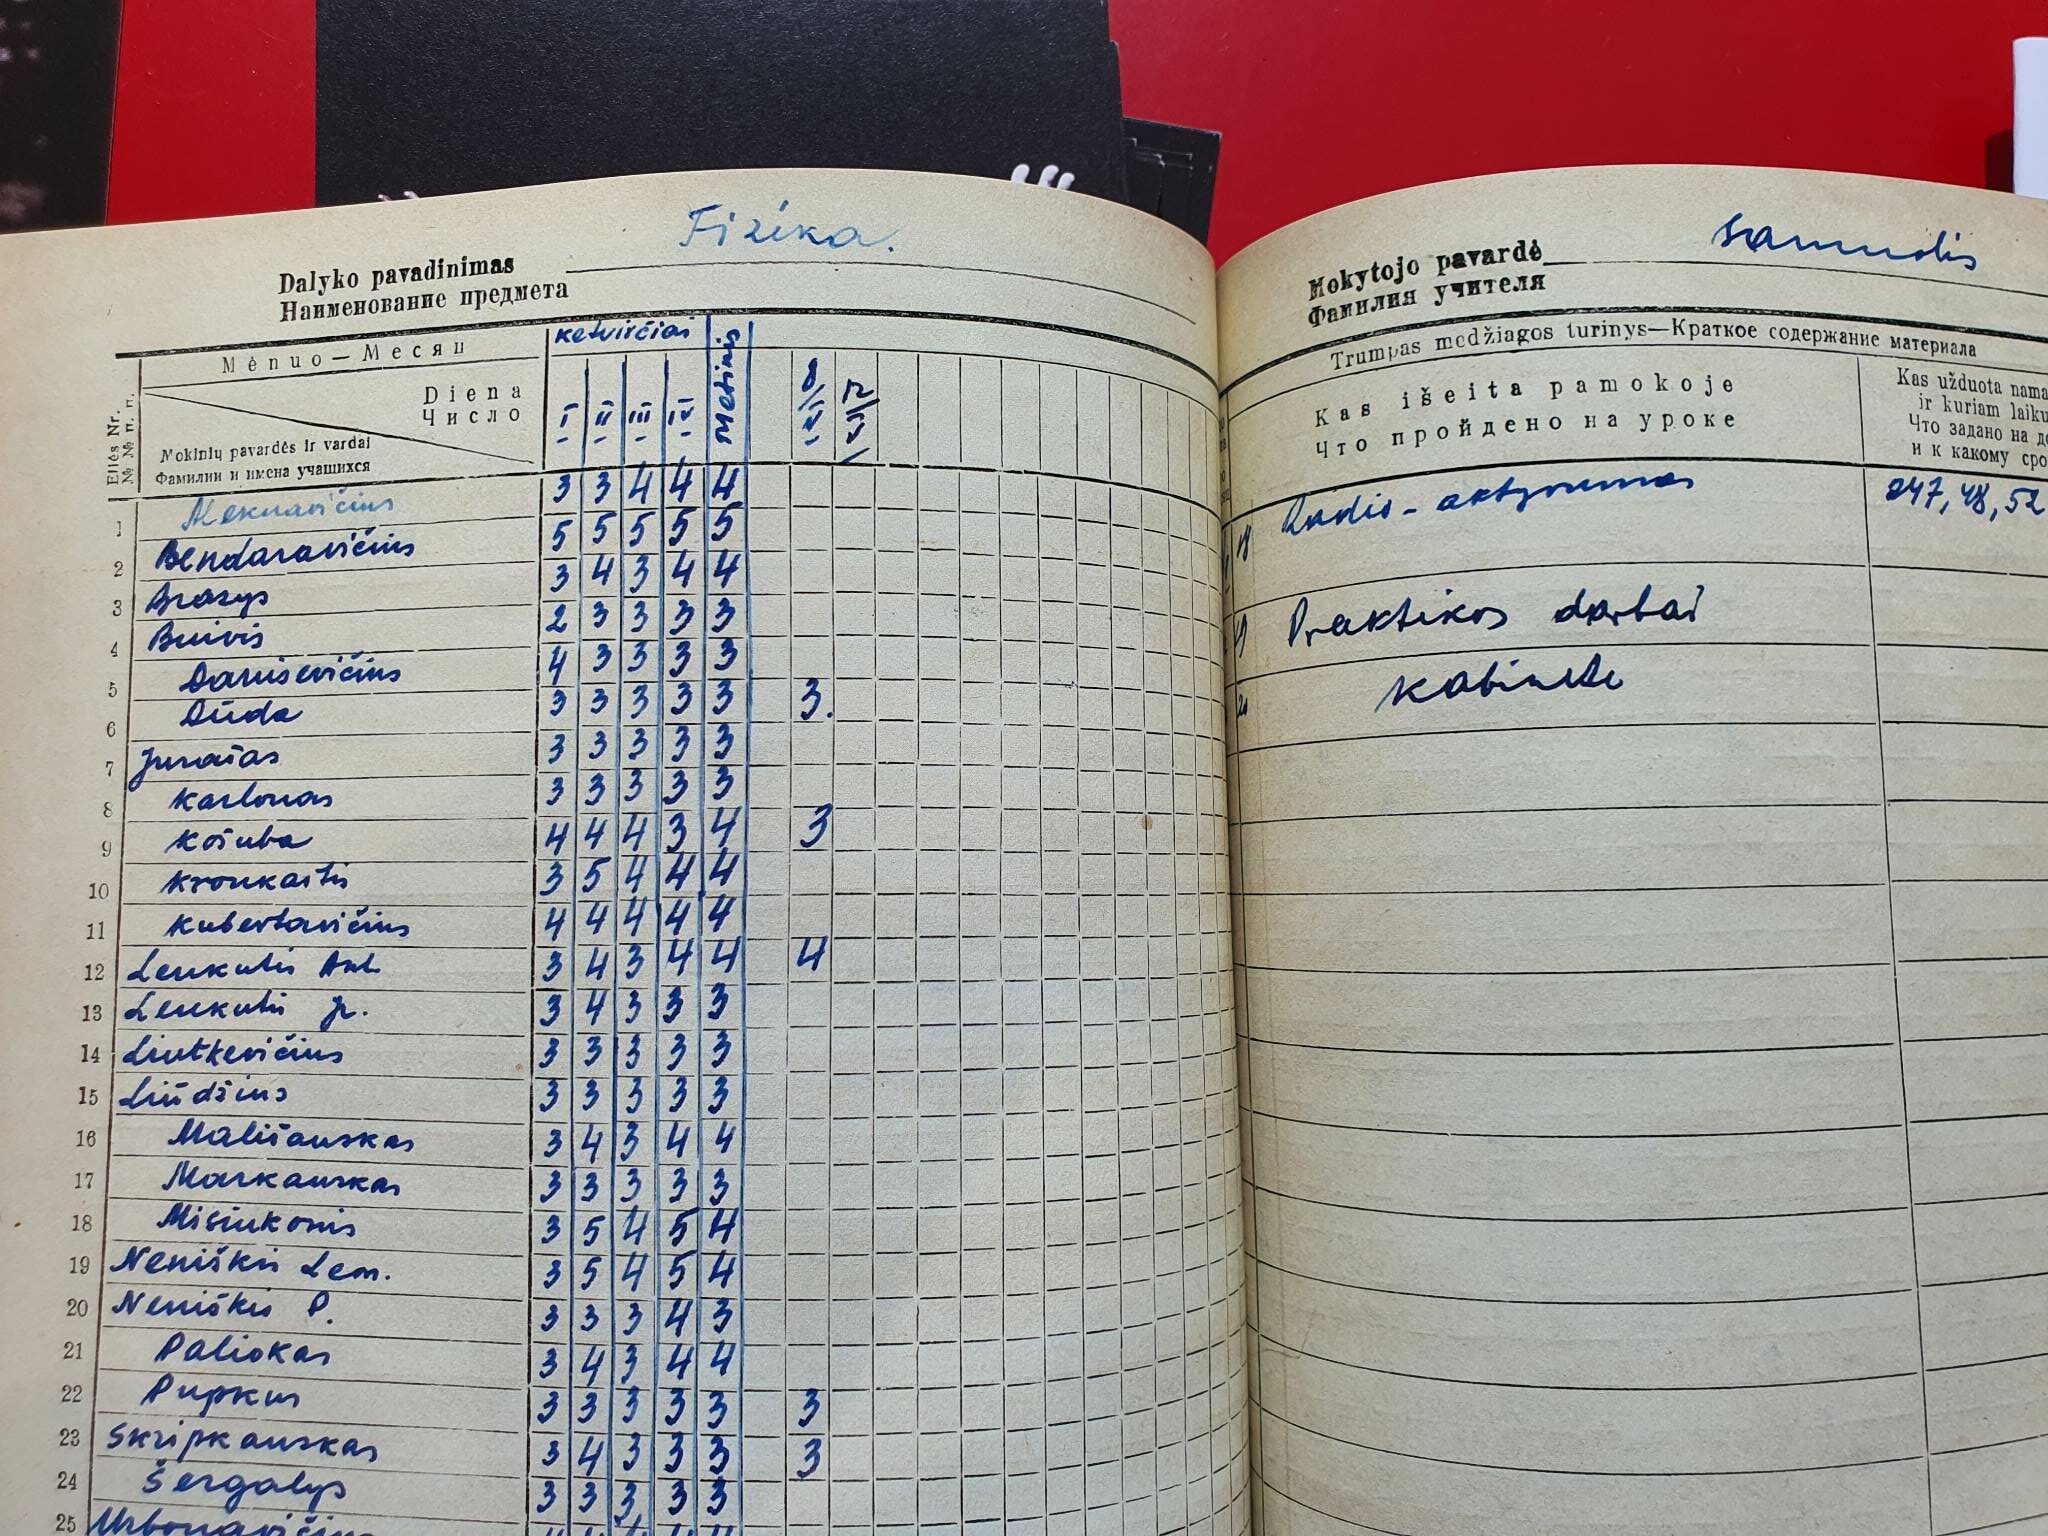 Fizika.
Dalyko pavadinimas
Наименование предмета
Mėnuo — Месяц
ketvirčiai
Metinis
Diena
Число
I II III IV
Eilės Nr.
№ № п. п.
Mokinių pavardės ir vardai
Фамилии и имена учащихся
1 3 3 4 4 4
2 Bendaravičius 5 5 5 5 5
3 Brazys 3 4 3 4 4
4 Buivis 2 3 3 3 3
5 Danisevičius 4 3 3 3 3
6 Dūda 3 3 3 3 3 3.
7 Jurašas 3 3 3 3 3
8 Karlonas 3 3 3 3 3
9 Košuba 4 4 4 3 4 3
10 Kronkaitis 3 5 4 4 4
11 Kubertavičius 4 4 4 4 4
12 Lenkutis Ant. 3 4 3 4 4 4
13 Lenkutis J. 3 4 3 3 3
14 Liutkevičius 3 3 3 3 3
15 Liūdžius 3 3 3 3 3
16 Mališauskas 3 4 3 4 4
17 Markauskas 3 3 3 3 3
18 Misiukonis 3 5 4 5 4
19 Neniškis Leon. 3 5 4 5 4
20 Neniškis P. 3 3 3 4 3
21 Paliokas 3 4 3 4 4
22 Pupkus 3 3 3 3 3 3
23 Skripkauskas 3 4 3 3 3 3
24 Šergalys 3 3 3 3 3
25 Urbonavičius
Samuolis
Mokytojo pavardė
Фамилия учителя
Trumpas medžiagos turinys—Краткое содержание материала
Kas išeita pamokoje
Что пройдено на уроке
Kas užduota nama
ir kuriam laiku
Что задано на до
и к какому сро
18 Radio-aktyvumas 247, 48, 52
19 Praktikos darbai
20 kabinete